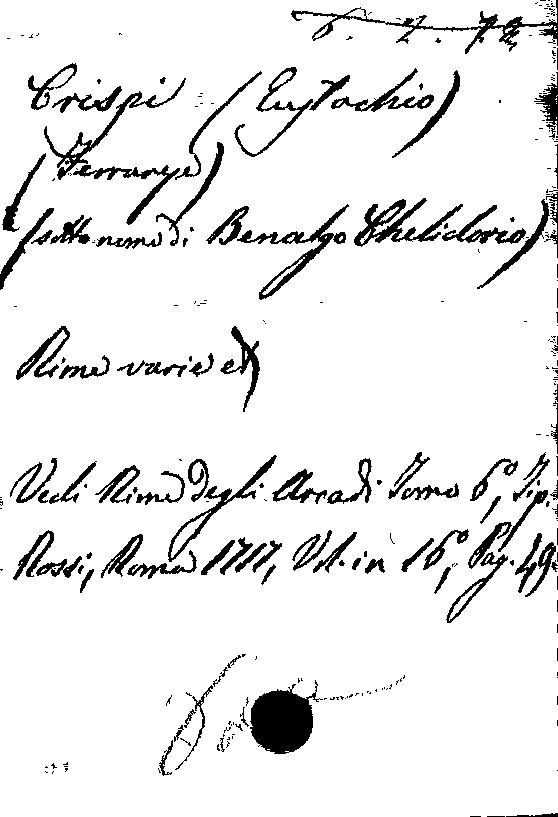 6. 2. 72
Crispi (Eustachio)
(Ferrarese)
(sotto nome di Benalgo Chelidorio)
Rime varie
Vedi Rime degli Arcadi Tomo 6º, Tip.
Rossi, Roma 1717, Vol. in 16º, Pag. 49.